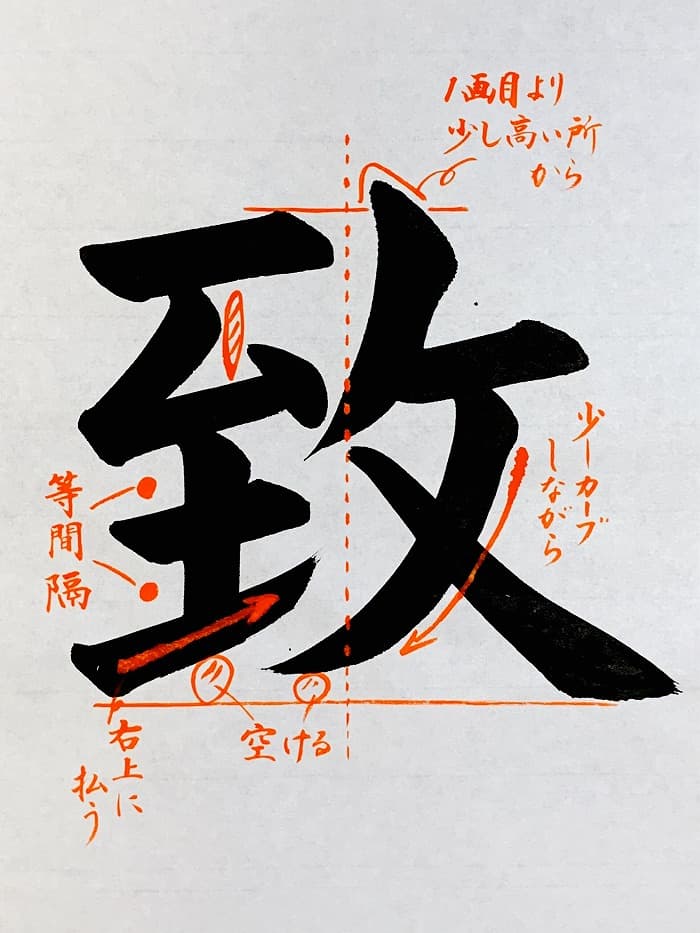 1画目より
少し高い所
から
致
少しカーブ
しながら
等間隔
空ける
右上に
払う